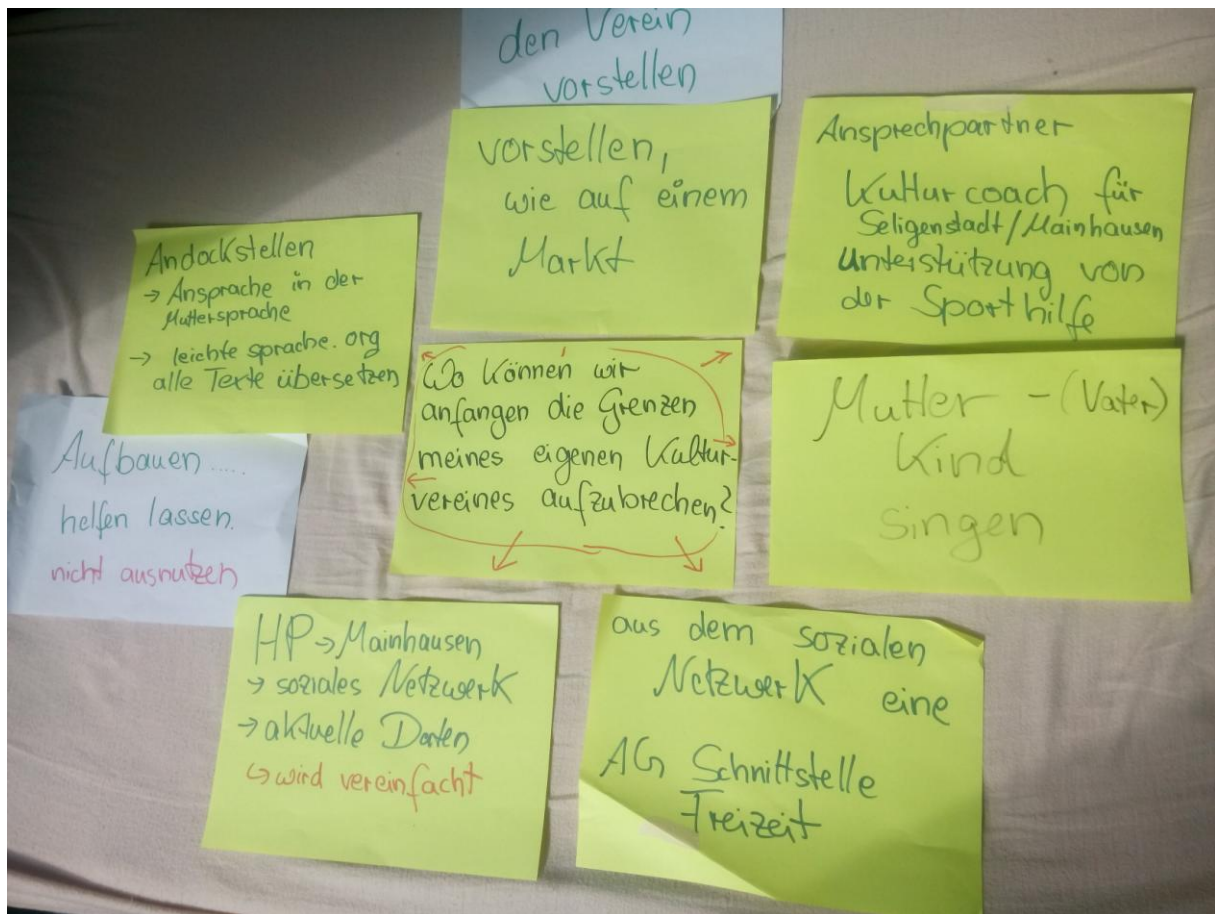 den Verein
vorstellen
vorstellen,
wie auf einem
Markt
Ansprechpartner
Kulturcoach für
Seligenstadt/Mainhausen
Unterstützung von
der Sporthilfe
Andockstellen
→ Ansprache in der
Muttersprache
→ leichte sprache.org
alle Texte übersetzen
Wo können wir
anfangen die Grenzen
meines eigenen Kultur-
vereines aufzubrechen?
Mutter - (Vater)
Kind
singen
Aufbauen.....
helfen lassen.
nicht ausnutzen
HP → Mainhausen
→ soziales Netzwerk
→ aktuelle Daten
↳ wird vereinfacht
aus dem sozialen
Netzwerk eine
AG Schnittstelle
Freizeit